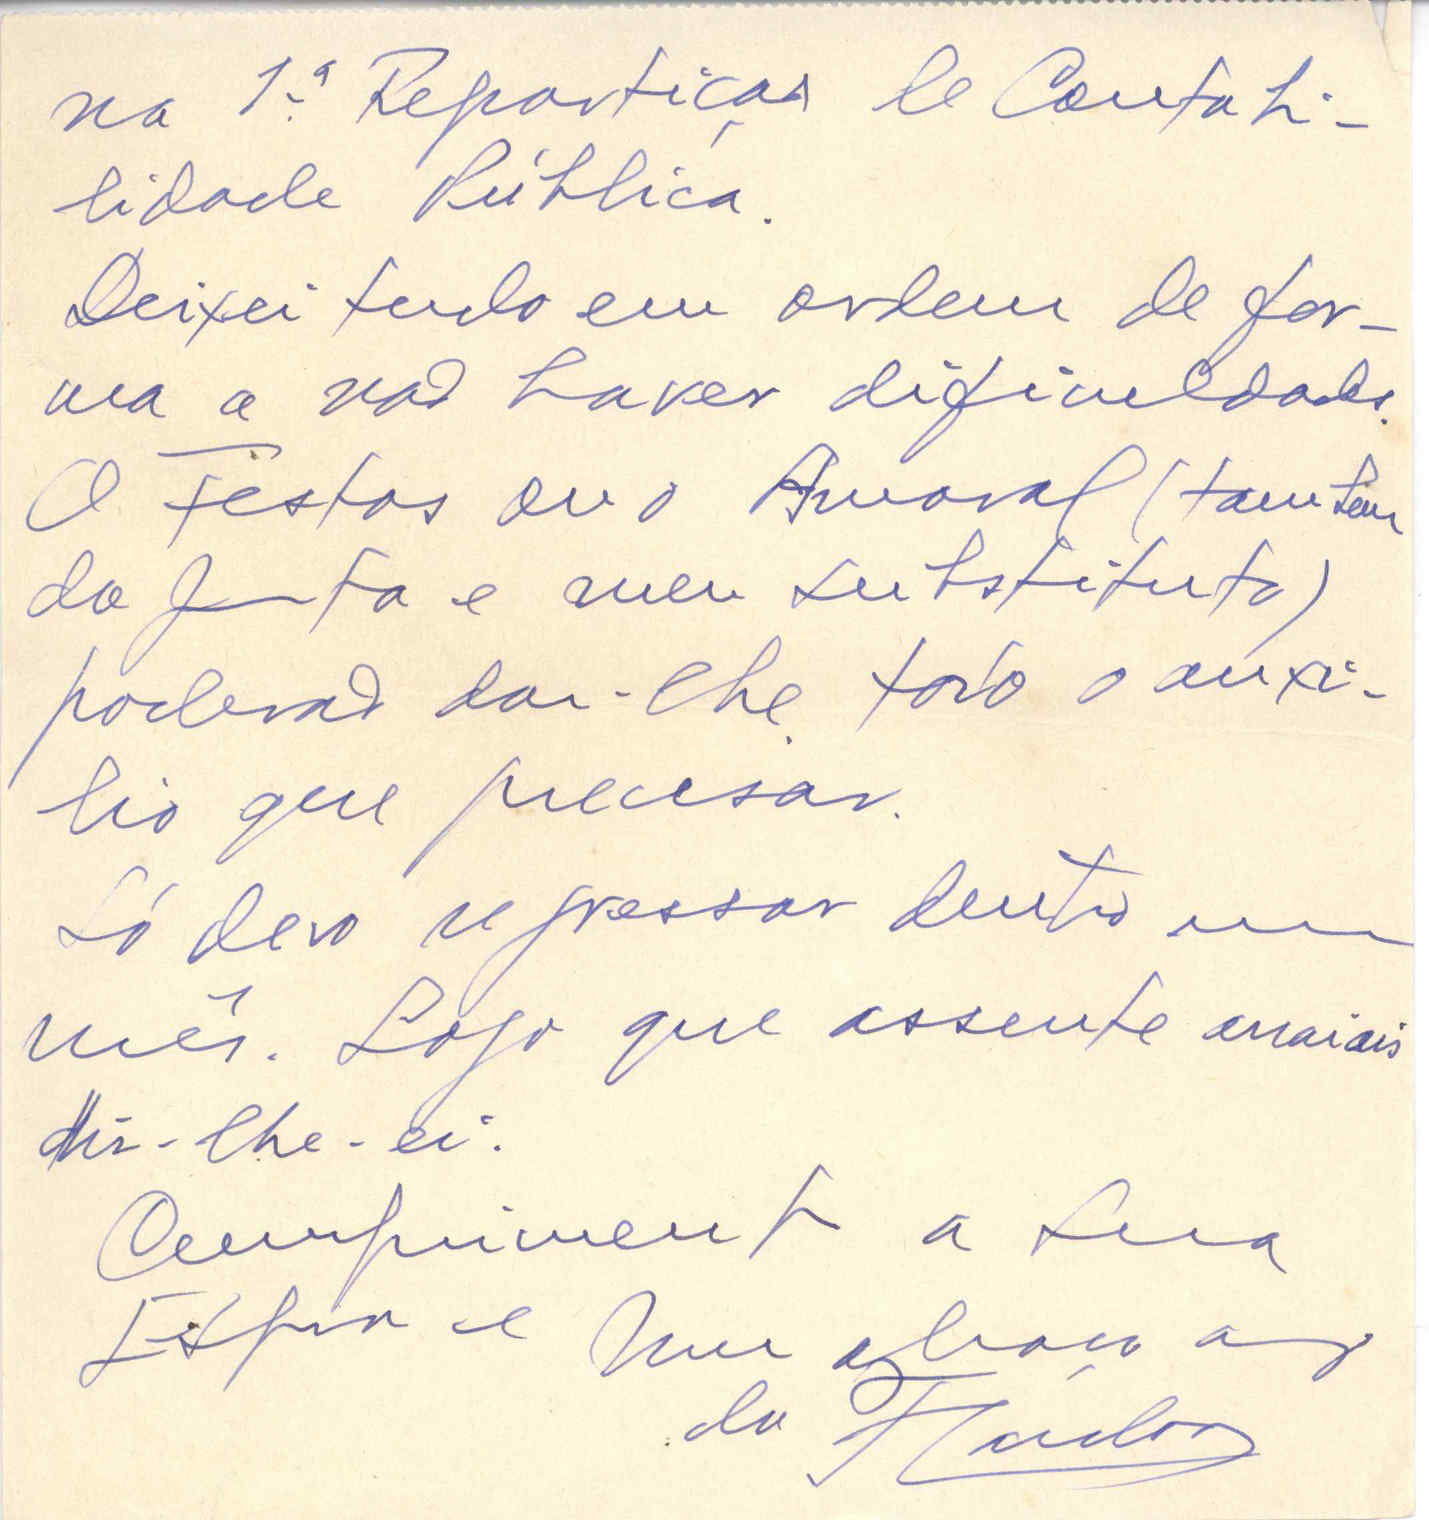 na 1.ª Repartição de Contabi-
lidade Pública.
Deixei tudo em ordem de for-
ma a não haver dificuldades.
O Festas ou o Amaral (também
da Junta e meu substituto)
poderão dar-lhe todo o auxi-
lio que precisar.
Só devo regressar dentro um
mês. Logo que assente arraiais
dir-lhe-ei.
Cumprimento a Sua
Espoa e um abraço
do